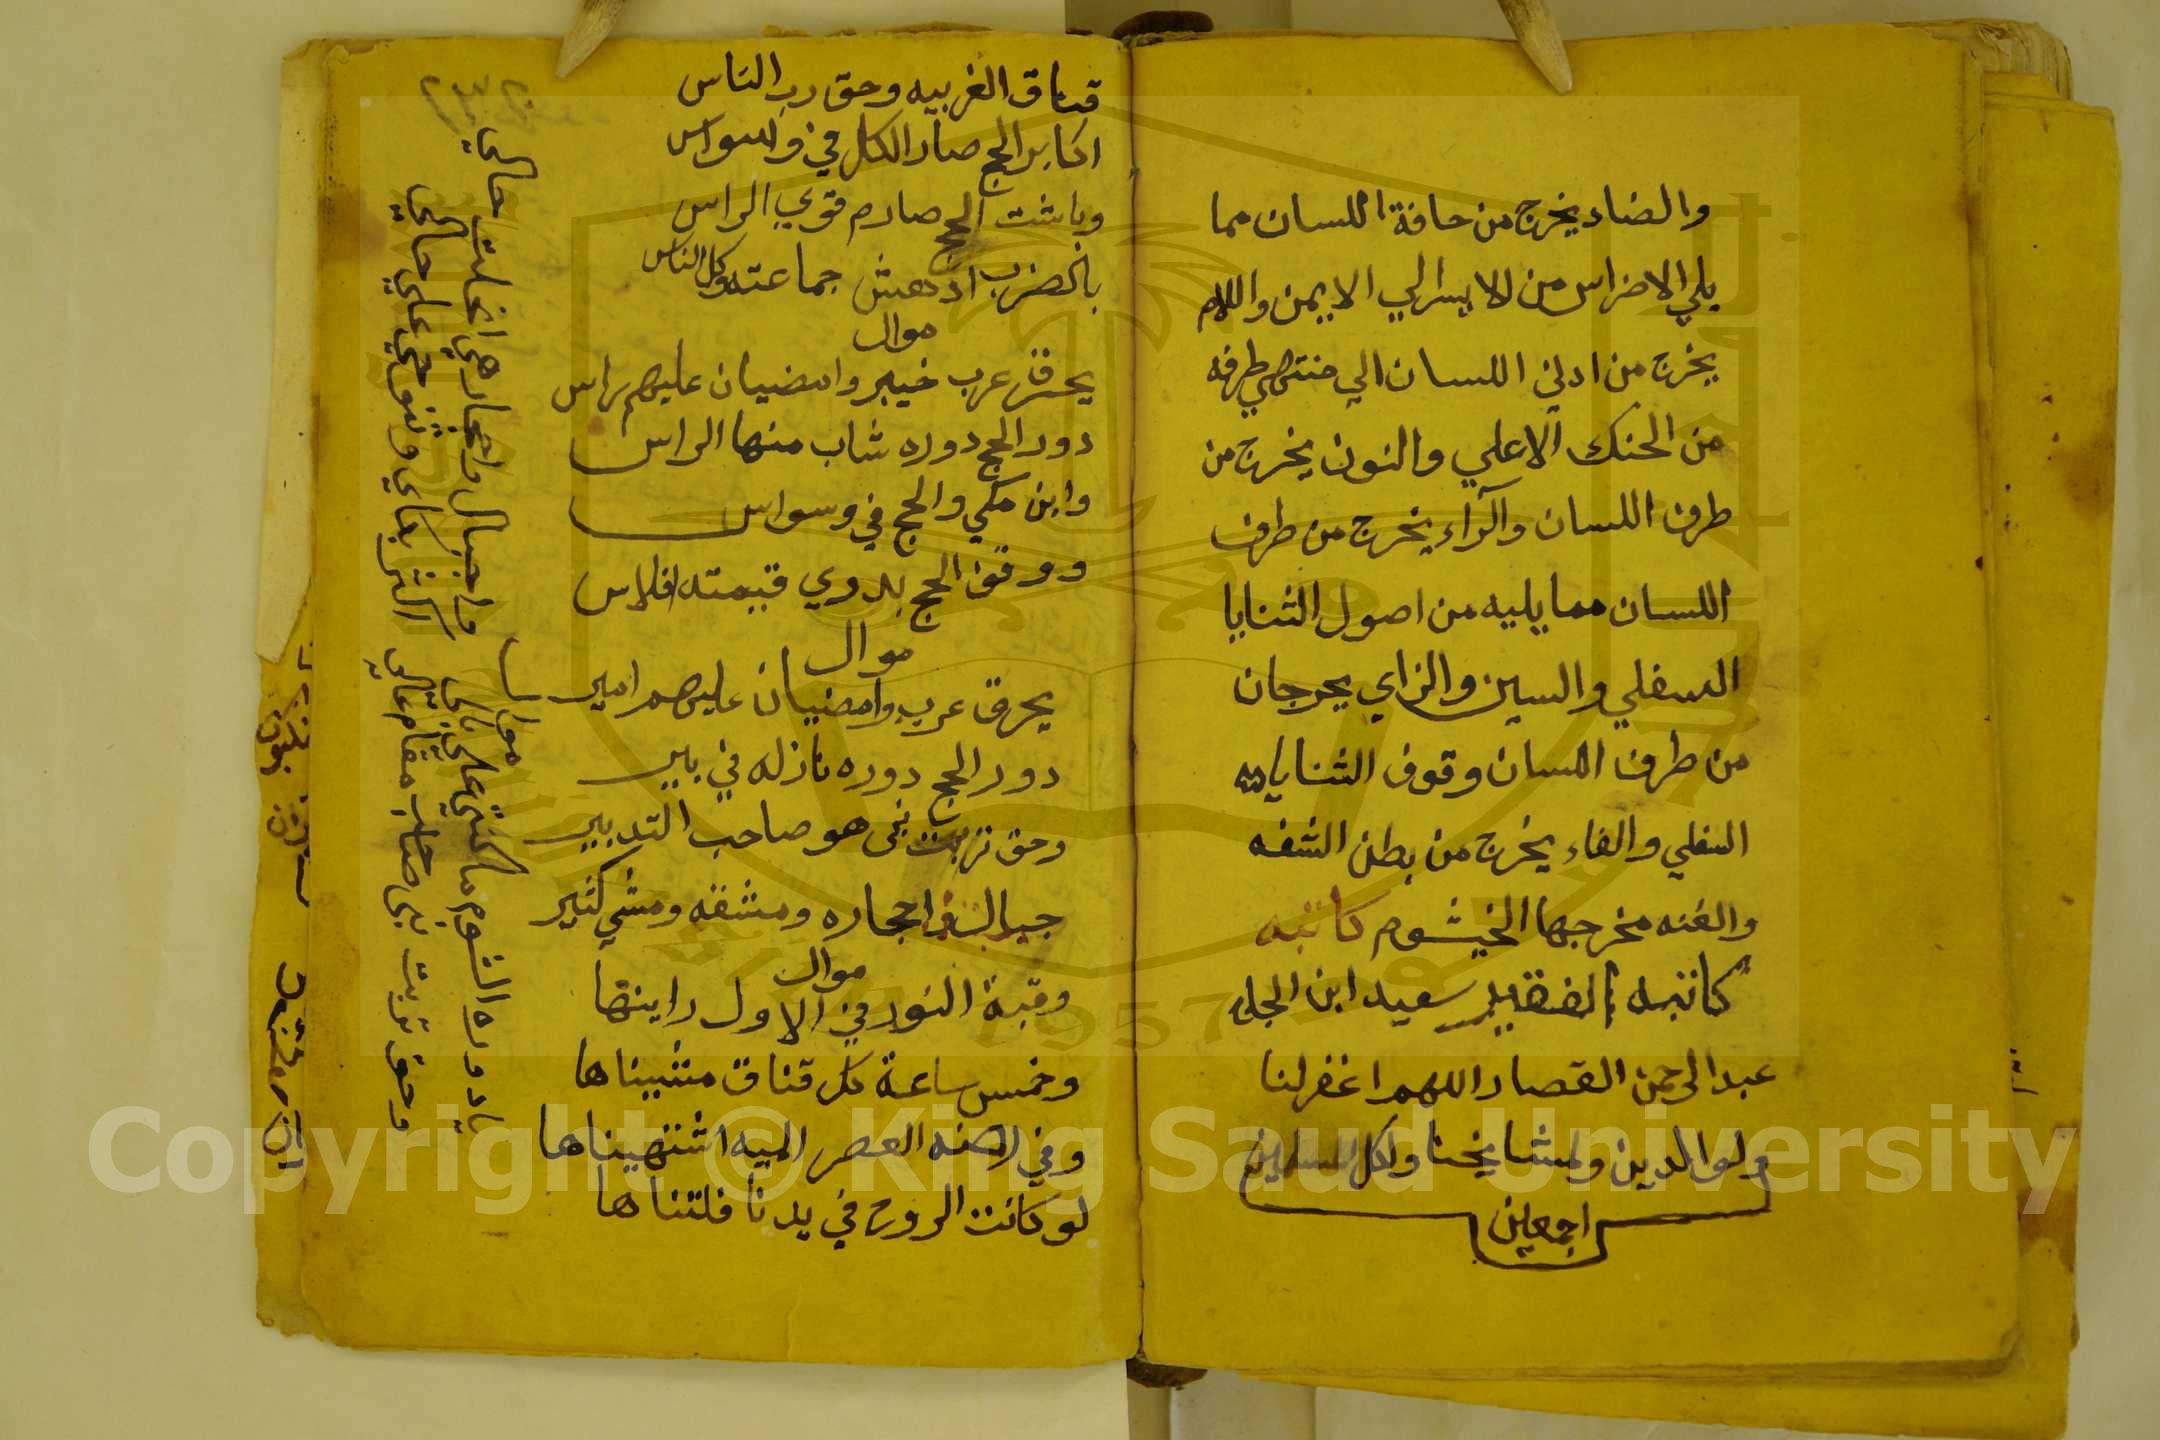 والضاد يخرج من حافة اللسان مما
يلي الاضراس من الايسر الي الايمن واللام
يخرج من ادني اللسان الي منتهي طرفه
من الحنك الاعلي والنون يخرج من
طرف اللسان والراء يخرج من طرف
اللسان مما يليه من اصول الثنايا
السفلي والسين والزاي يخرجان
من طرف اللسان وقوف الثنايا
السفلي والفاء يخرج من بطن الشفه
والغنه مخرجها الخيشوم كاتبه
كاتبه الفقير سعيد ابن الحاج
عبد الرحمن القصار اللهم اغفر لنا
ولوالدين ولمشايخنا ولكل المسلمين
اجمعين
قناق الغربيه وحق رب الناس
اكابر الحج صار الكل في وسواس
وباشت الحج صارم قوي الراس
بالضرب ادهش جماعته وكل الناس
موال
يحرق عرب خيبر وامضيان عليهم راس
دور الحج دوره شاب منها الراس
وابن مكي والحج في وسواس
ووقف الحج بدوي قيمته افلاس
موال
يحرق عرب وامضيان عليهم امير
دور الحج دوره نازله في بير
وحق تربت نبي هو صاحب التدبير
جبال احجاره ومشقه ومشي كثير
موال
وقبة النور في الاول راينها
وخمس ساعة كل قناق مشيناها
وفي العصر الميه اشتهيناها
لو كانت الروح في يدنا فلتناها
موال
يا دوره الشوم ما كنتي علي بالي
حالي
وحق تربت نبي صاحب مقام عالي
علي حالي
Copyright © King Saud University
1957